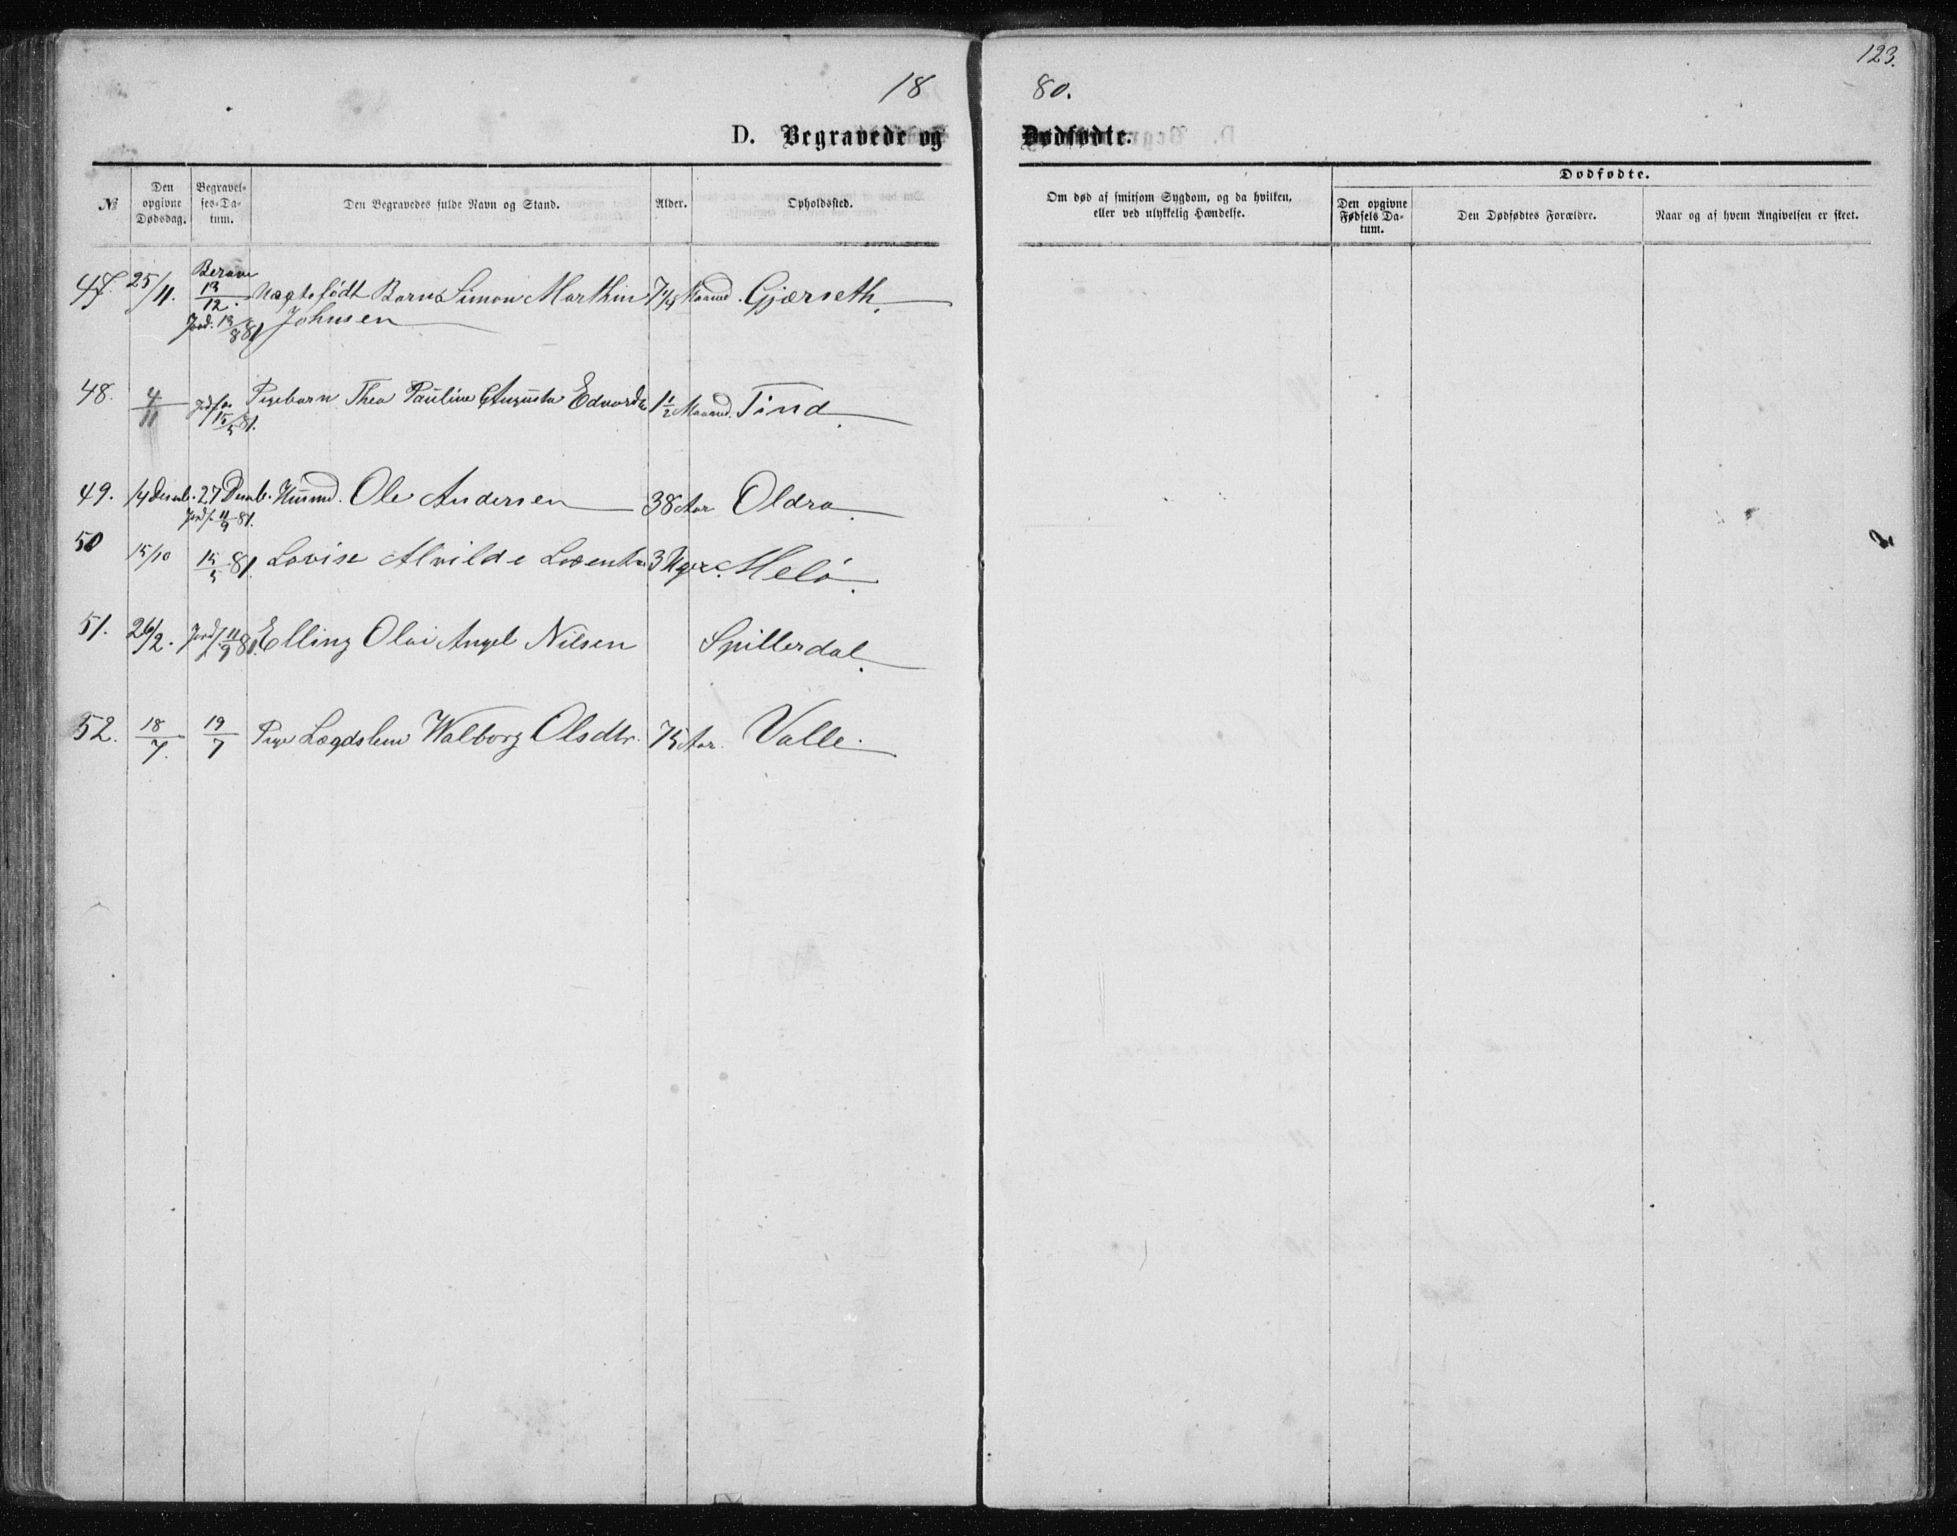 123.
18 80.
D. Begravede og Dødfødte.
№ Den opgivne Dødsdag. Begravelses-Datum. Den Begravedes fulde Navn og Stand. Alder. Opholdssted. Om død af smitsom Sygdom, og da hvilken, eller ved ulykkelig Hændelse. Dødfødte. Den opgivne Fødsels Datum. Den Dødfødtes Forældre. Naar og af hvem Angivelsen er skeet.
47. 25/11. 13/12. Ægtefødt Barn Simon Marthin 7 Maaned. Gjærseth.
Jord. 13/8 81 Johnsen
48. 4/11 15/5 81. Pigebarn Thea Pauline Augusta Edvards 1 1/2 Maaned. Tind.
49. 14 Decmb. 27 Decmb. Husmd. Ole Andersen 38 Aar Oldra.
Jordf. 11/9 81.
50 15/10 15/5 81. Lovise Alvilde 3 Uger. Melø.
51. 26/2. Jordf. 11/9 81. Elling Olai Angel Nilsen Spillerdal.
52. 18/7. 19/7 Pige Lægdslem Walborg Olsdtr. 75 Aar. Valle.